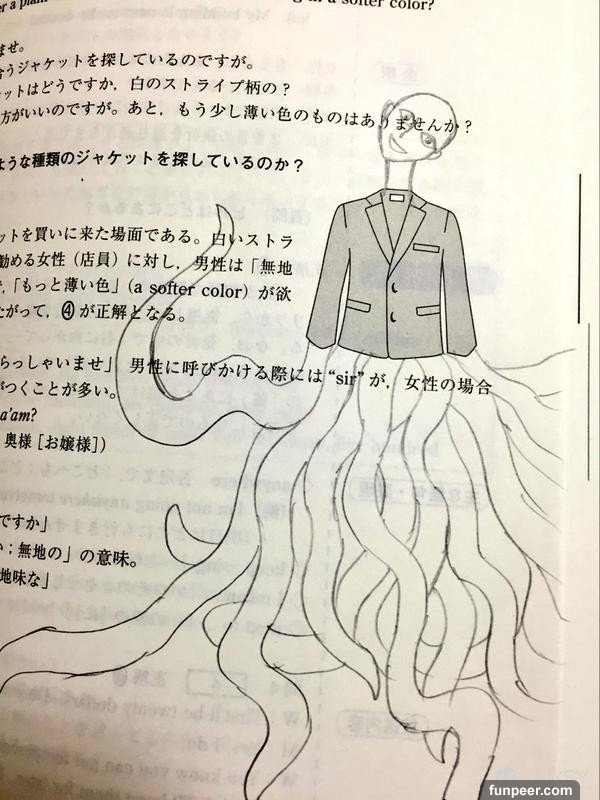 in a softer color?
ませ。
うジャケットを探しているのですが。
ットはどうですか，白のストライプ柄の？
方がいいのですが。あと，もう少し薄い色のものはありませんか？
ような種類のジャケットを探しているのか？
ットを買いに来た場面である。白いストラ
勧める女性（店員）に対し，男性は「無地
，「もっと薄い色」(a softer color) が欲
たがって，④が正解となる。
らっしゃいませ」 男性に呼びかける際には “sir” が，女性の場合
がつくことが多い。
a'am?
奥様［お嬢様］)
ですか」
；無地の」の意味。
地味な」
funpeer.com